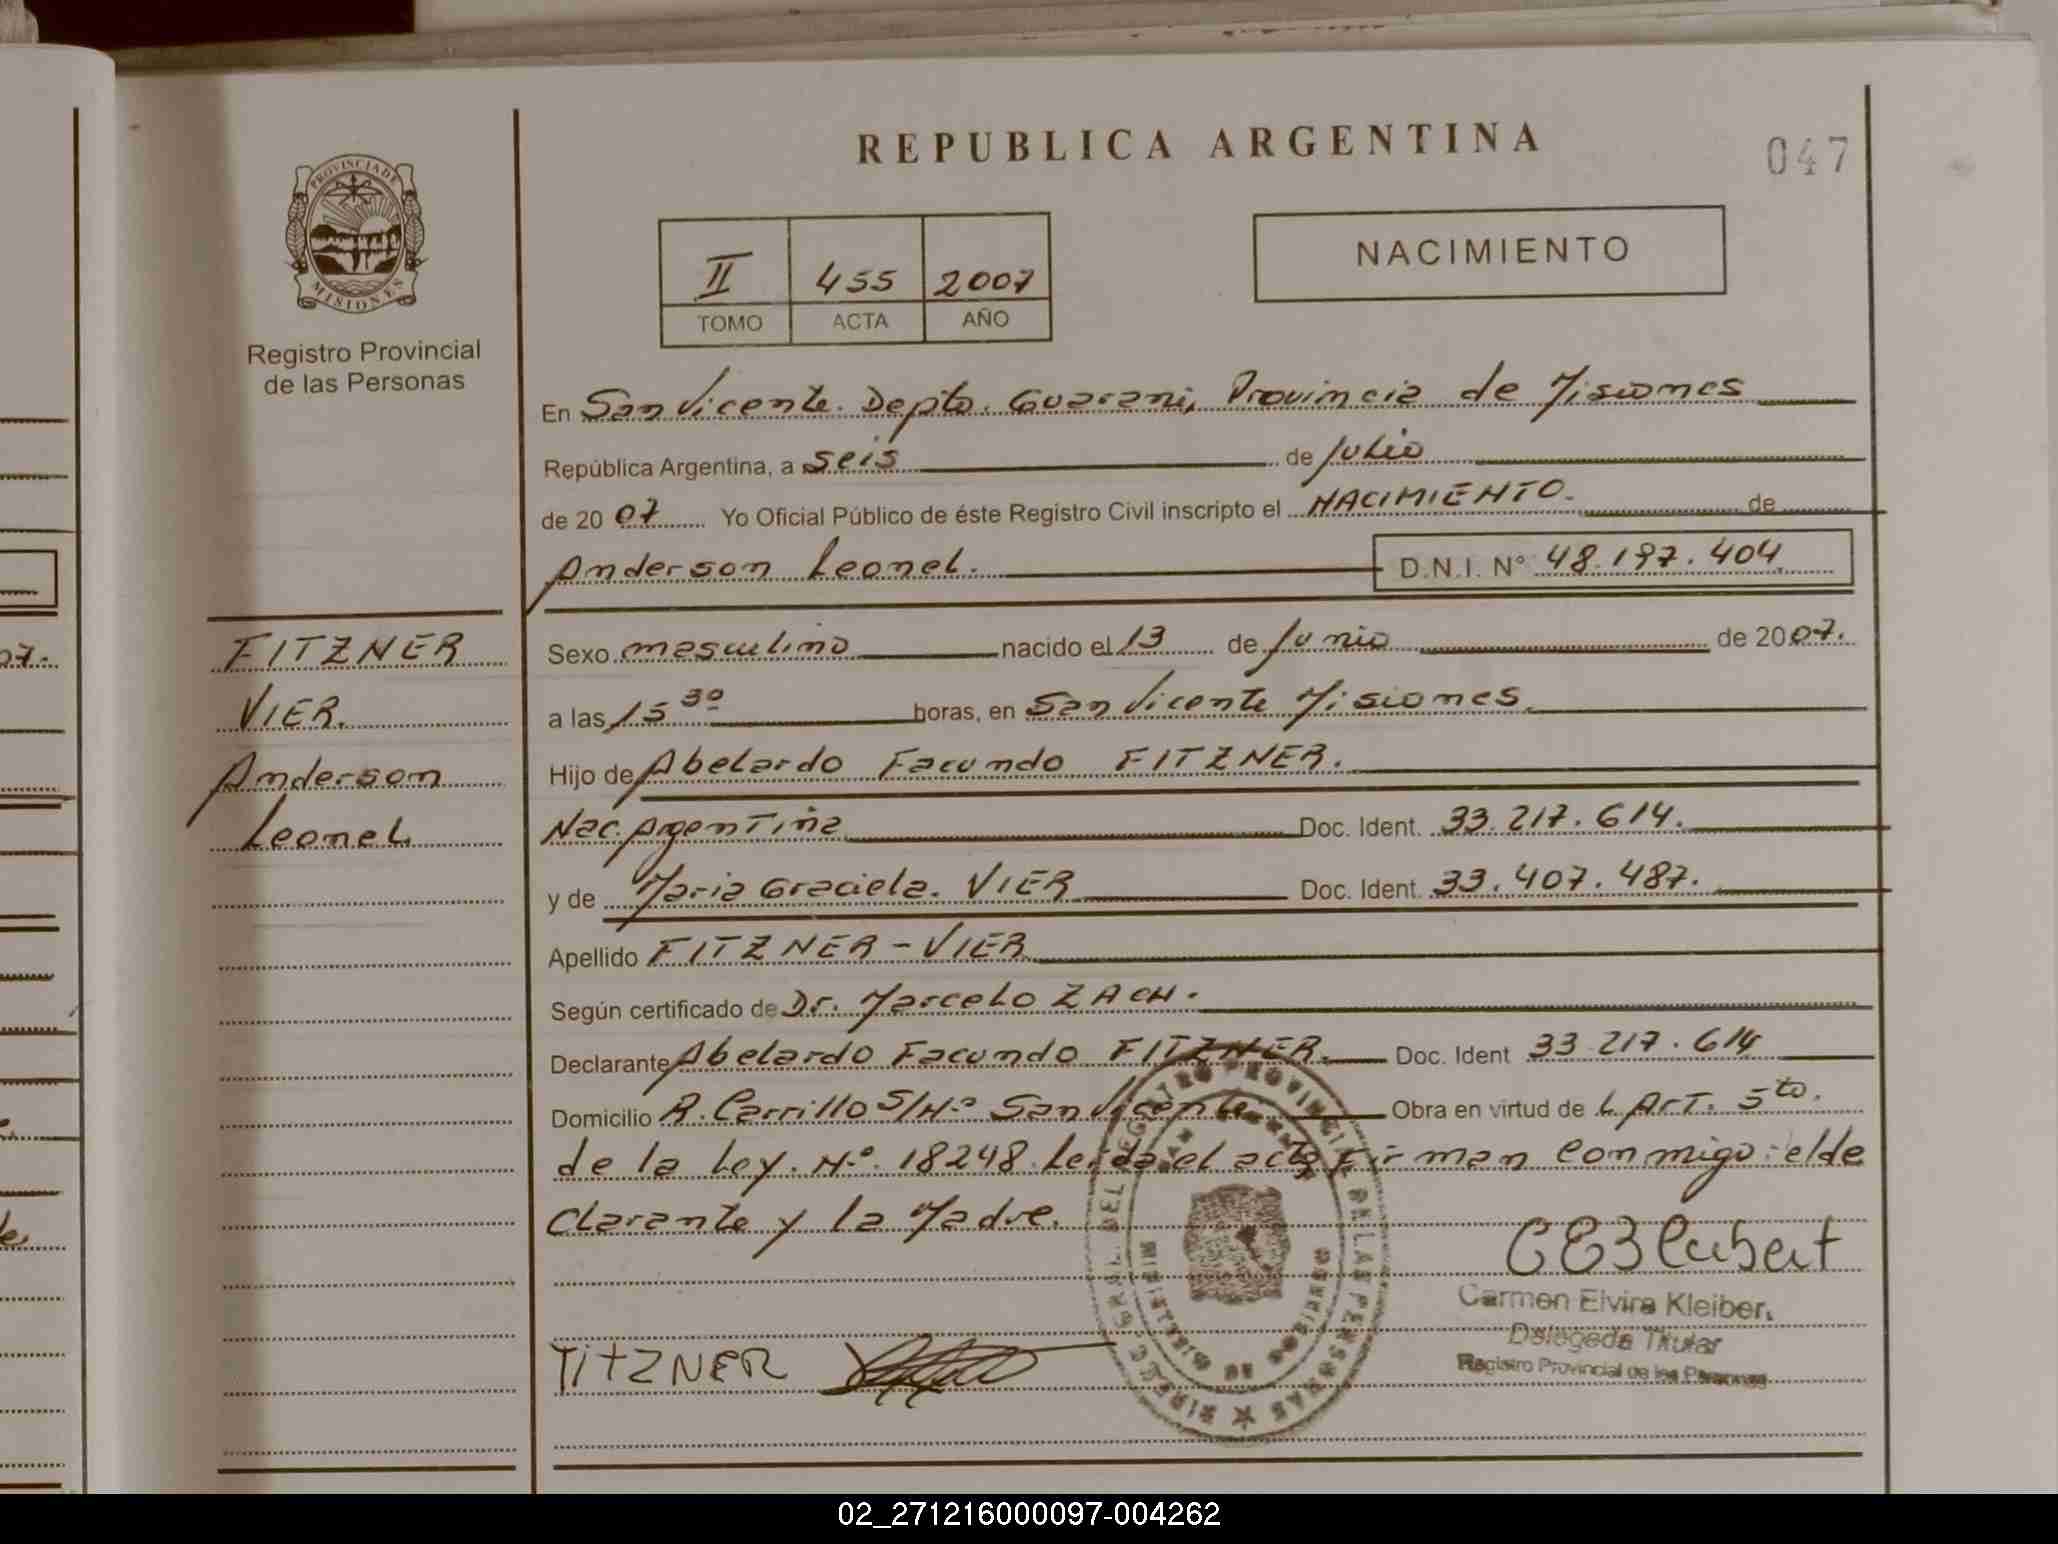 REPUBLICA ARGENTINA
047
PROVINCIA DE
MISIONES
Registro Provincial
de las Personas
II 455 2007
TOMO ACTA AÑO
NACIMIENTO
En San Vicente. Depto. Guarani, Provincia de Misiones
República Argentina, a seis de Julio
de 20 07 Yo Oficial Público de éste Registro Civil inscripto el NACIMIENTO. de
Anderson Leonel. D.N.I. N° 48.197.404
FITZNER
VIER.
Anderson
Leonel
Sexo masculino nacido el 13 de Junio de 2007.
a las 15 30 horas, en San Vicente Misiones.
Hijo de Abelardo Facundo FITZNER.
Nac. Argentina Doc. Ident. 33.217.614.
y de Maria Graciela. VIER Doc. Ident. 33.407.487.
Apellido FITZNER-VIER
Según certificado de Dr. Marcelo ZACH.
Declarante Abelardo Facundo FITZNER. Doc. Ident 33 217.614
Domicilio R. Carrillo S/N.º San Vicente Obra en virtud de L Art. 5to.
de la Ley. N.º 18248 Leida el acta Firman Conmigo: el de
clarante y la Madre.
07.
Carmen Elvira Kleiber.
Delegada Titular
Registro Provincial de las Personas
TITZNER
02_271216000097-004262